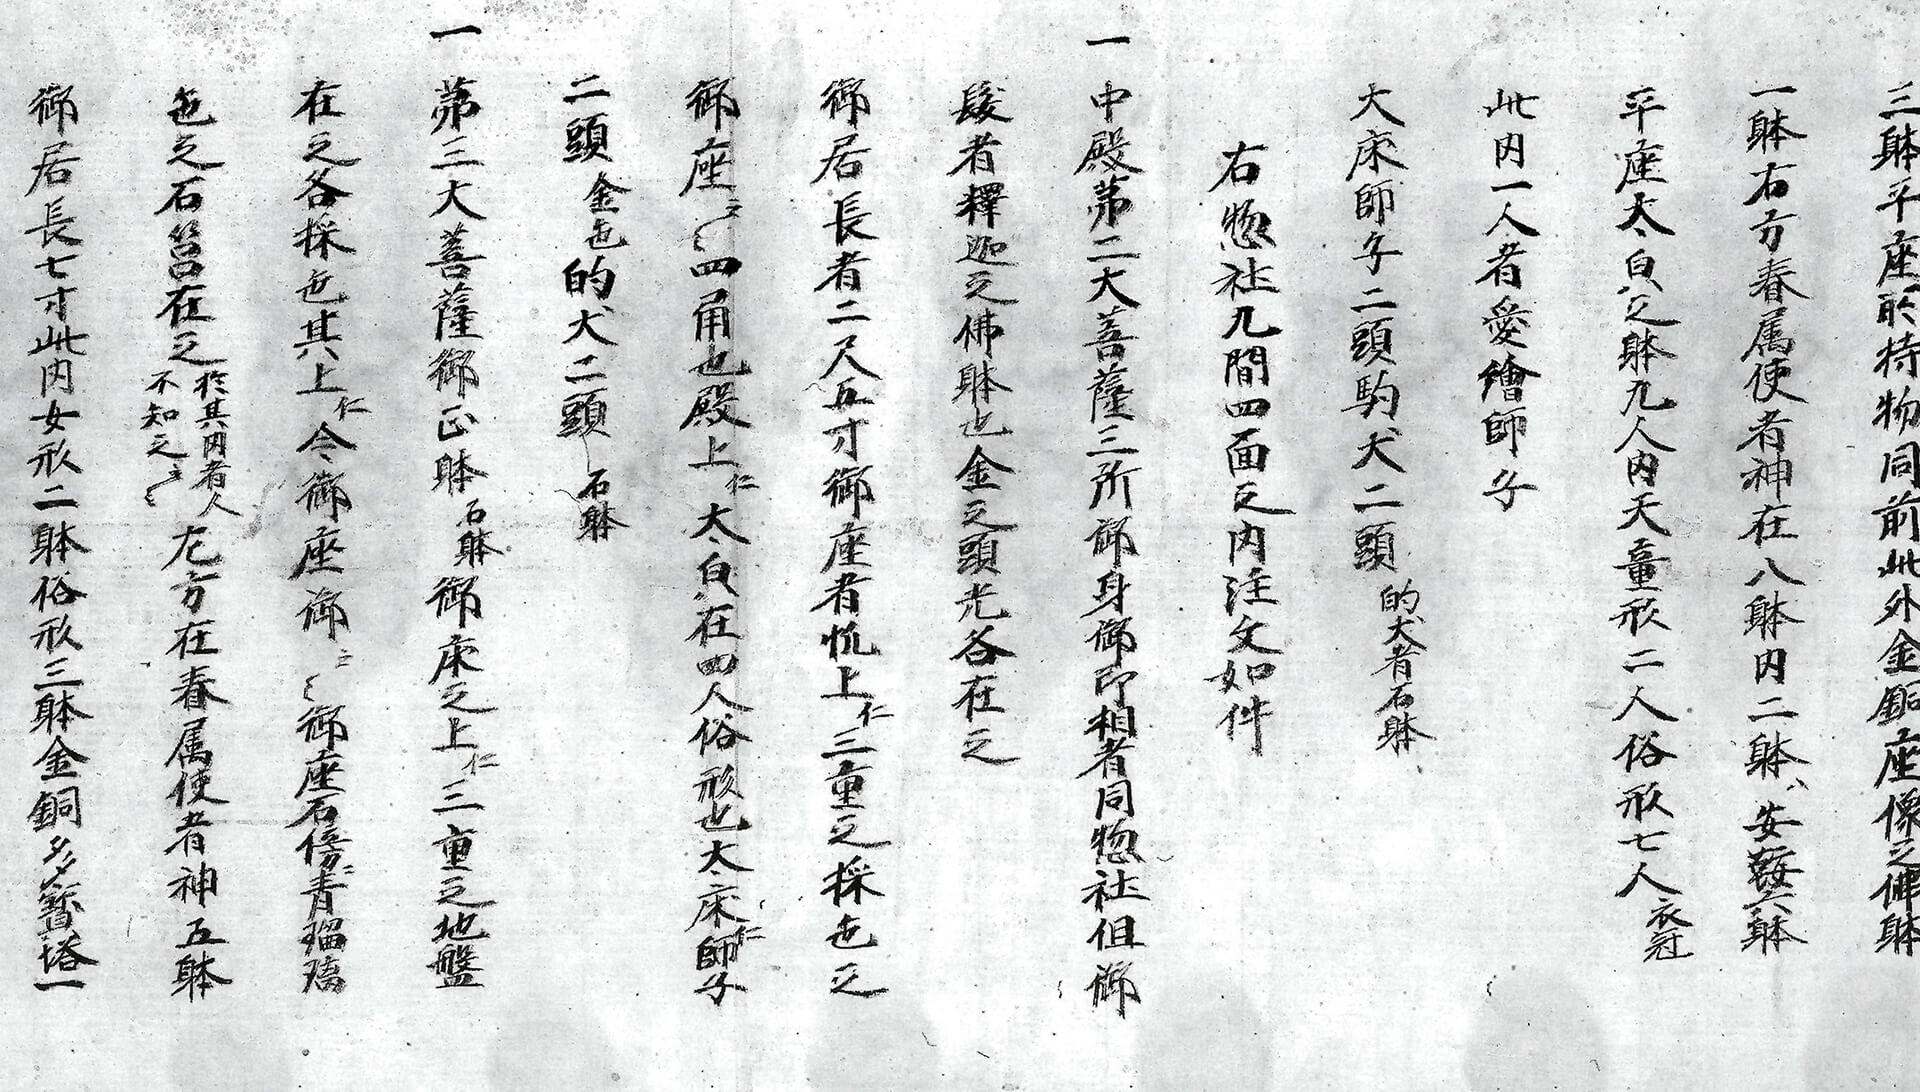 三躰平座於持物同前此外金銅座像之佛躰
一躰右方春属使者神在八躰内二躰、安鞍六躰
平座太良之躰九人内天童形二人俗形七人衣冠
此内一人者愛繪師子
大床師子二頭駒犬二頭的犬者石躰
右惣社九間四面之内注文如件
一中殿第二大菩薩三所御身御印相者同惣社但御
髪者釋迦之佛躰也金之頭光各在之
御居長者二尺五寸御座者帆上仁三重之採色之
御座ミ〵四角也殿上仁太良在四人俗形也太床仁師子
二頭金色的犬二頭石躰
一第三大菩薩御正躰石躰御床之上仁三重之地盤
在之各採色其上仁令御座御ミ〵御座石傍ニ青瑠璃
色之石筥在之於其内者人不知之ミ〵左方在春属使者神五躰
御居長七寸此内女形二躰俗形三躰金銅多寳塔一